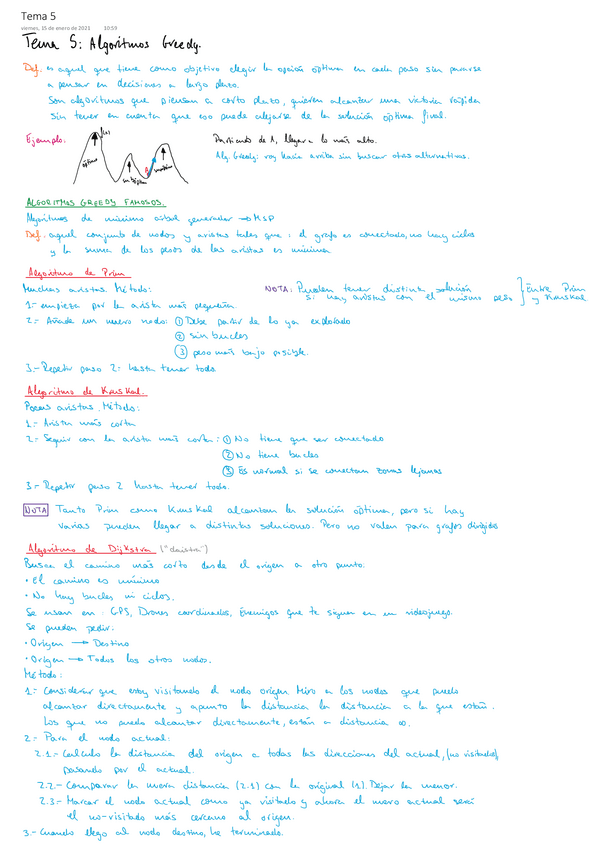 Tema 5
viernes, 15 de enero de 2021 10:59
Tema 5: Algoritmos Greedy.
Def. es aquel que tiene como objetivo elegir la opción óptima en cada paso sin pararse
a pensar en decisiones a largo plazo.
Son algoritmos que piensan a corto plazo, quieren alcanzar una victoria rápida
sin tener en cuenta que eso puede alejarse de la solución óptima final.
Ejemplo:
óptimo
Partiendo de A, llegar a lo más alto.
Alg. Greedy: voy hacia arriba sin buscar otras alternativas.
ALGORITMOS GREEDY FAMOSOS.
Algoritmos de mínimo árbol generador → MSP
Def. aquel conjunto de nodos y aristas tales que: el grafo es conectado, no hay ciclos
y la suma de los pesos de las aristas es mínima
Algoritmo de Prim
Muchas aristas. Método:
NOTA: Pueden tener distinta solución
si hay aristas con el mismo peso
Entre Prim
y Kruskal
1.- empieza por la arista más pequeña.
2.- Añade un nuevo nodo: ① Debe partir de lo ya explorado
② sin bucles
③ peso más bajo posible.
3.- Repetir paso 2: hasta tener todo.
Algoritmo de Kruskal.
Pocas aristas. Método:
1.- Arista más corta
2.- Seguir con la arista más corta: ① No tiene que ser conectado
② No tiene bucles
③ Es normal si se conectan zonas lejanas
3.- Repetir paso 2 hasta tener todo.
NOTA Tanto Prim como Kruskal alcanzan la solución óptima, pero si hay
varias pueden llegar a distintas soluciones. Pero no valen para grafos dirigidos
Algoritmo de Dijkstra ("daistra")
Busca el camino más corto desde el origen a otro punto.
• El camino es mínimo
• No hay bucles ni ciclos.
Se usan en: GPS, Drones coordinados, Enemigos que te siguen en un videojuego.
Se pueden pedir:
• Origen → Destino
• Origen → Todos los otros nodos.
Método:
1.- Considerar que estoy visitando el nodo origen. Miro a los nodos que puedo
alcanzar directamente y apunto la distancia la distancia a la que están.
Los que no puedo alcanzar directamente, están a distancia ∞.
2.- Para el nodo actual:
2.1.- Calculo la distancia del origen a todas las direcciones del actual, (no visitado)
pasando por el actual.
2.2.- Comparar la nueva distancia (2.1) con la original (1). Dejar la menor.
2.3.- Marcar el nodo actual como ya visitado y ahora el nuevo actual será
el no-visitado más cercano al origen.
3.- Cuando llego al nodo destino, he terminado.